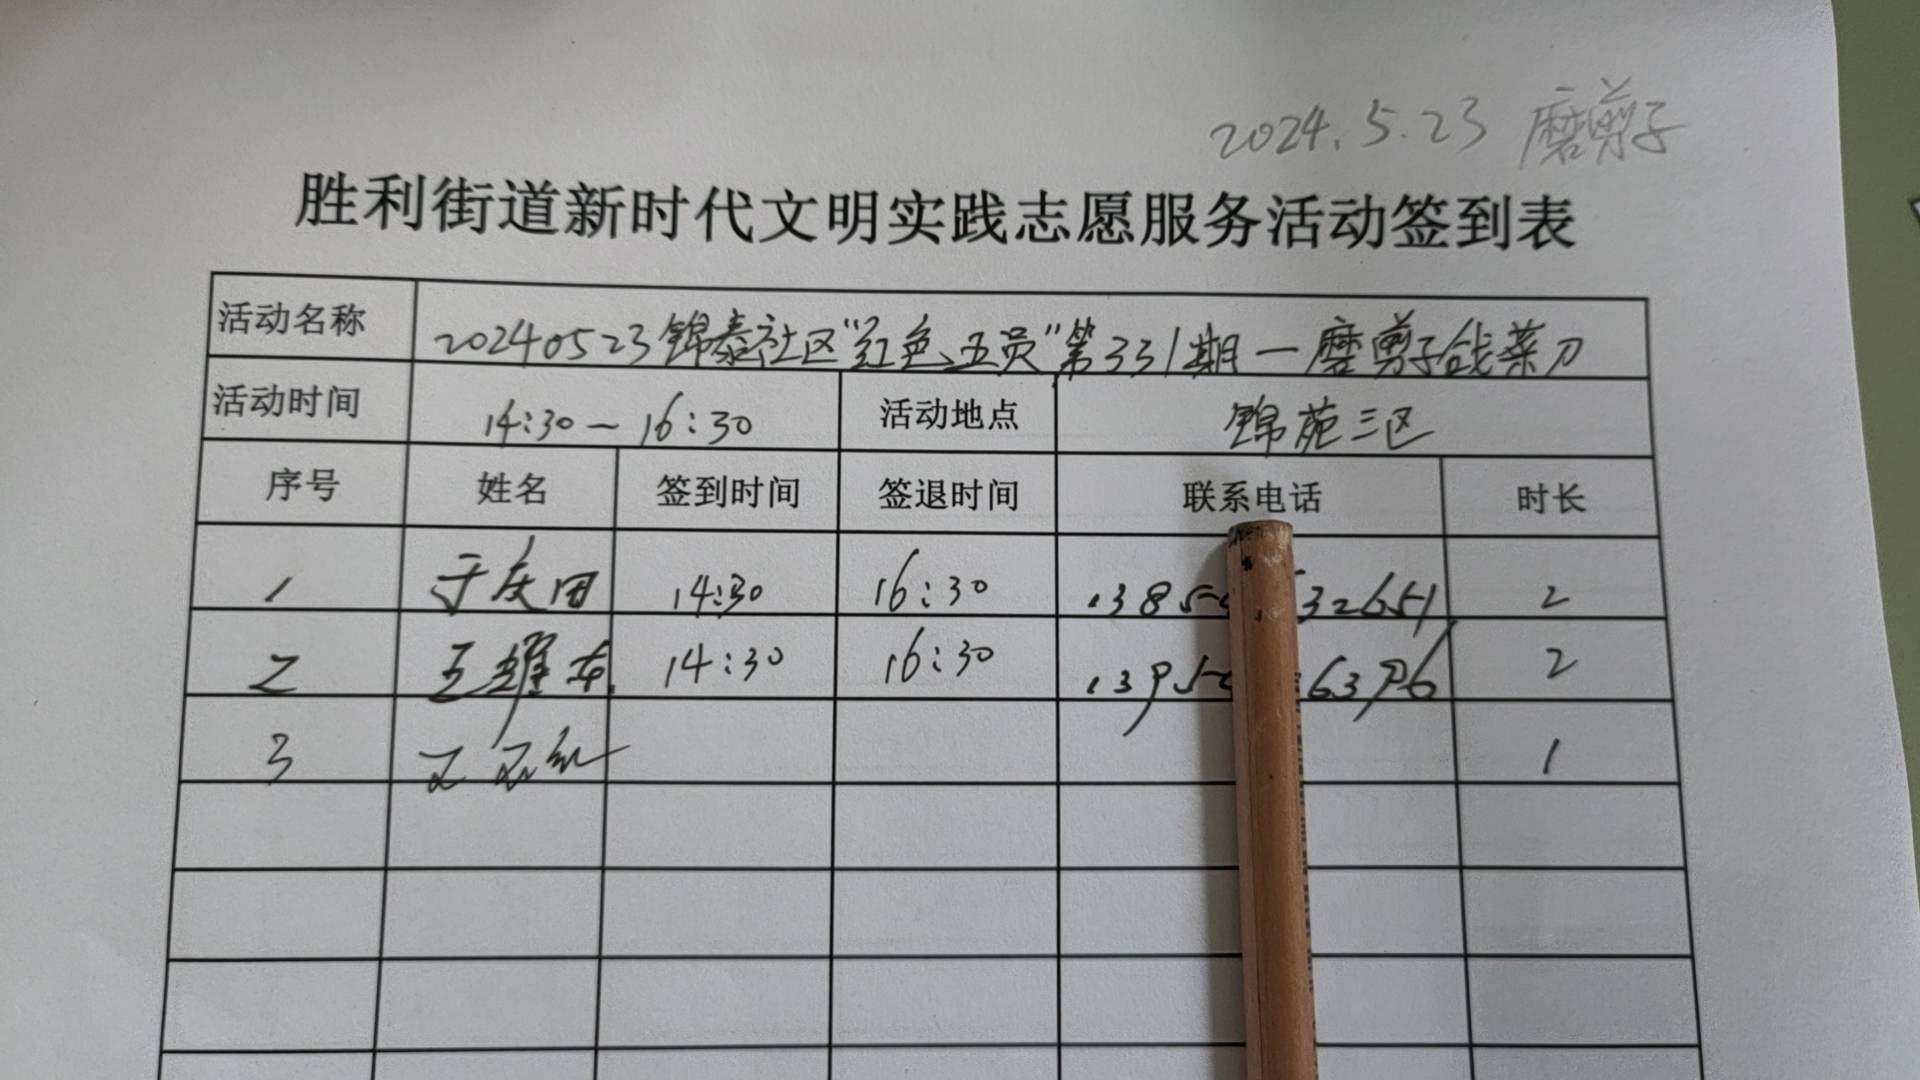 2024.5.23 磨剪子
胜利街道新时代文明实践志愿服务活动签到表
活动名称 20240523锦泰社区“红色五员”第331期—磨剪子戗菜刀
活动时间 14:30—16:30 活动地点 锦苑三区
序号 姓名 签到时间 签退时间 联系电话 时长
1 于庆田 14:30 16:30 1385 32651 2
2 王耀东 14:30 16:30 1395 6396 2
3 1